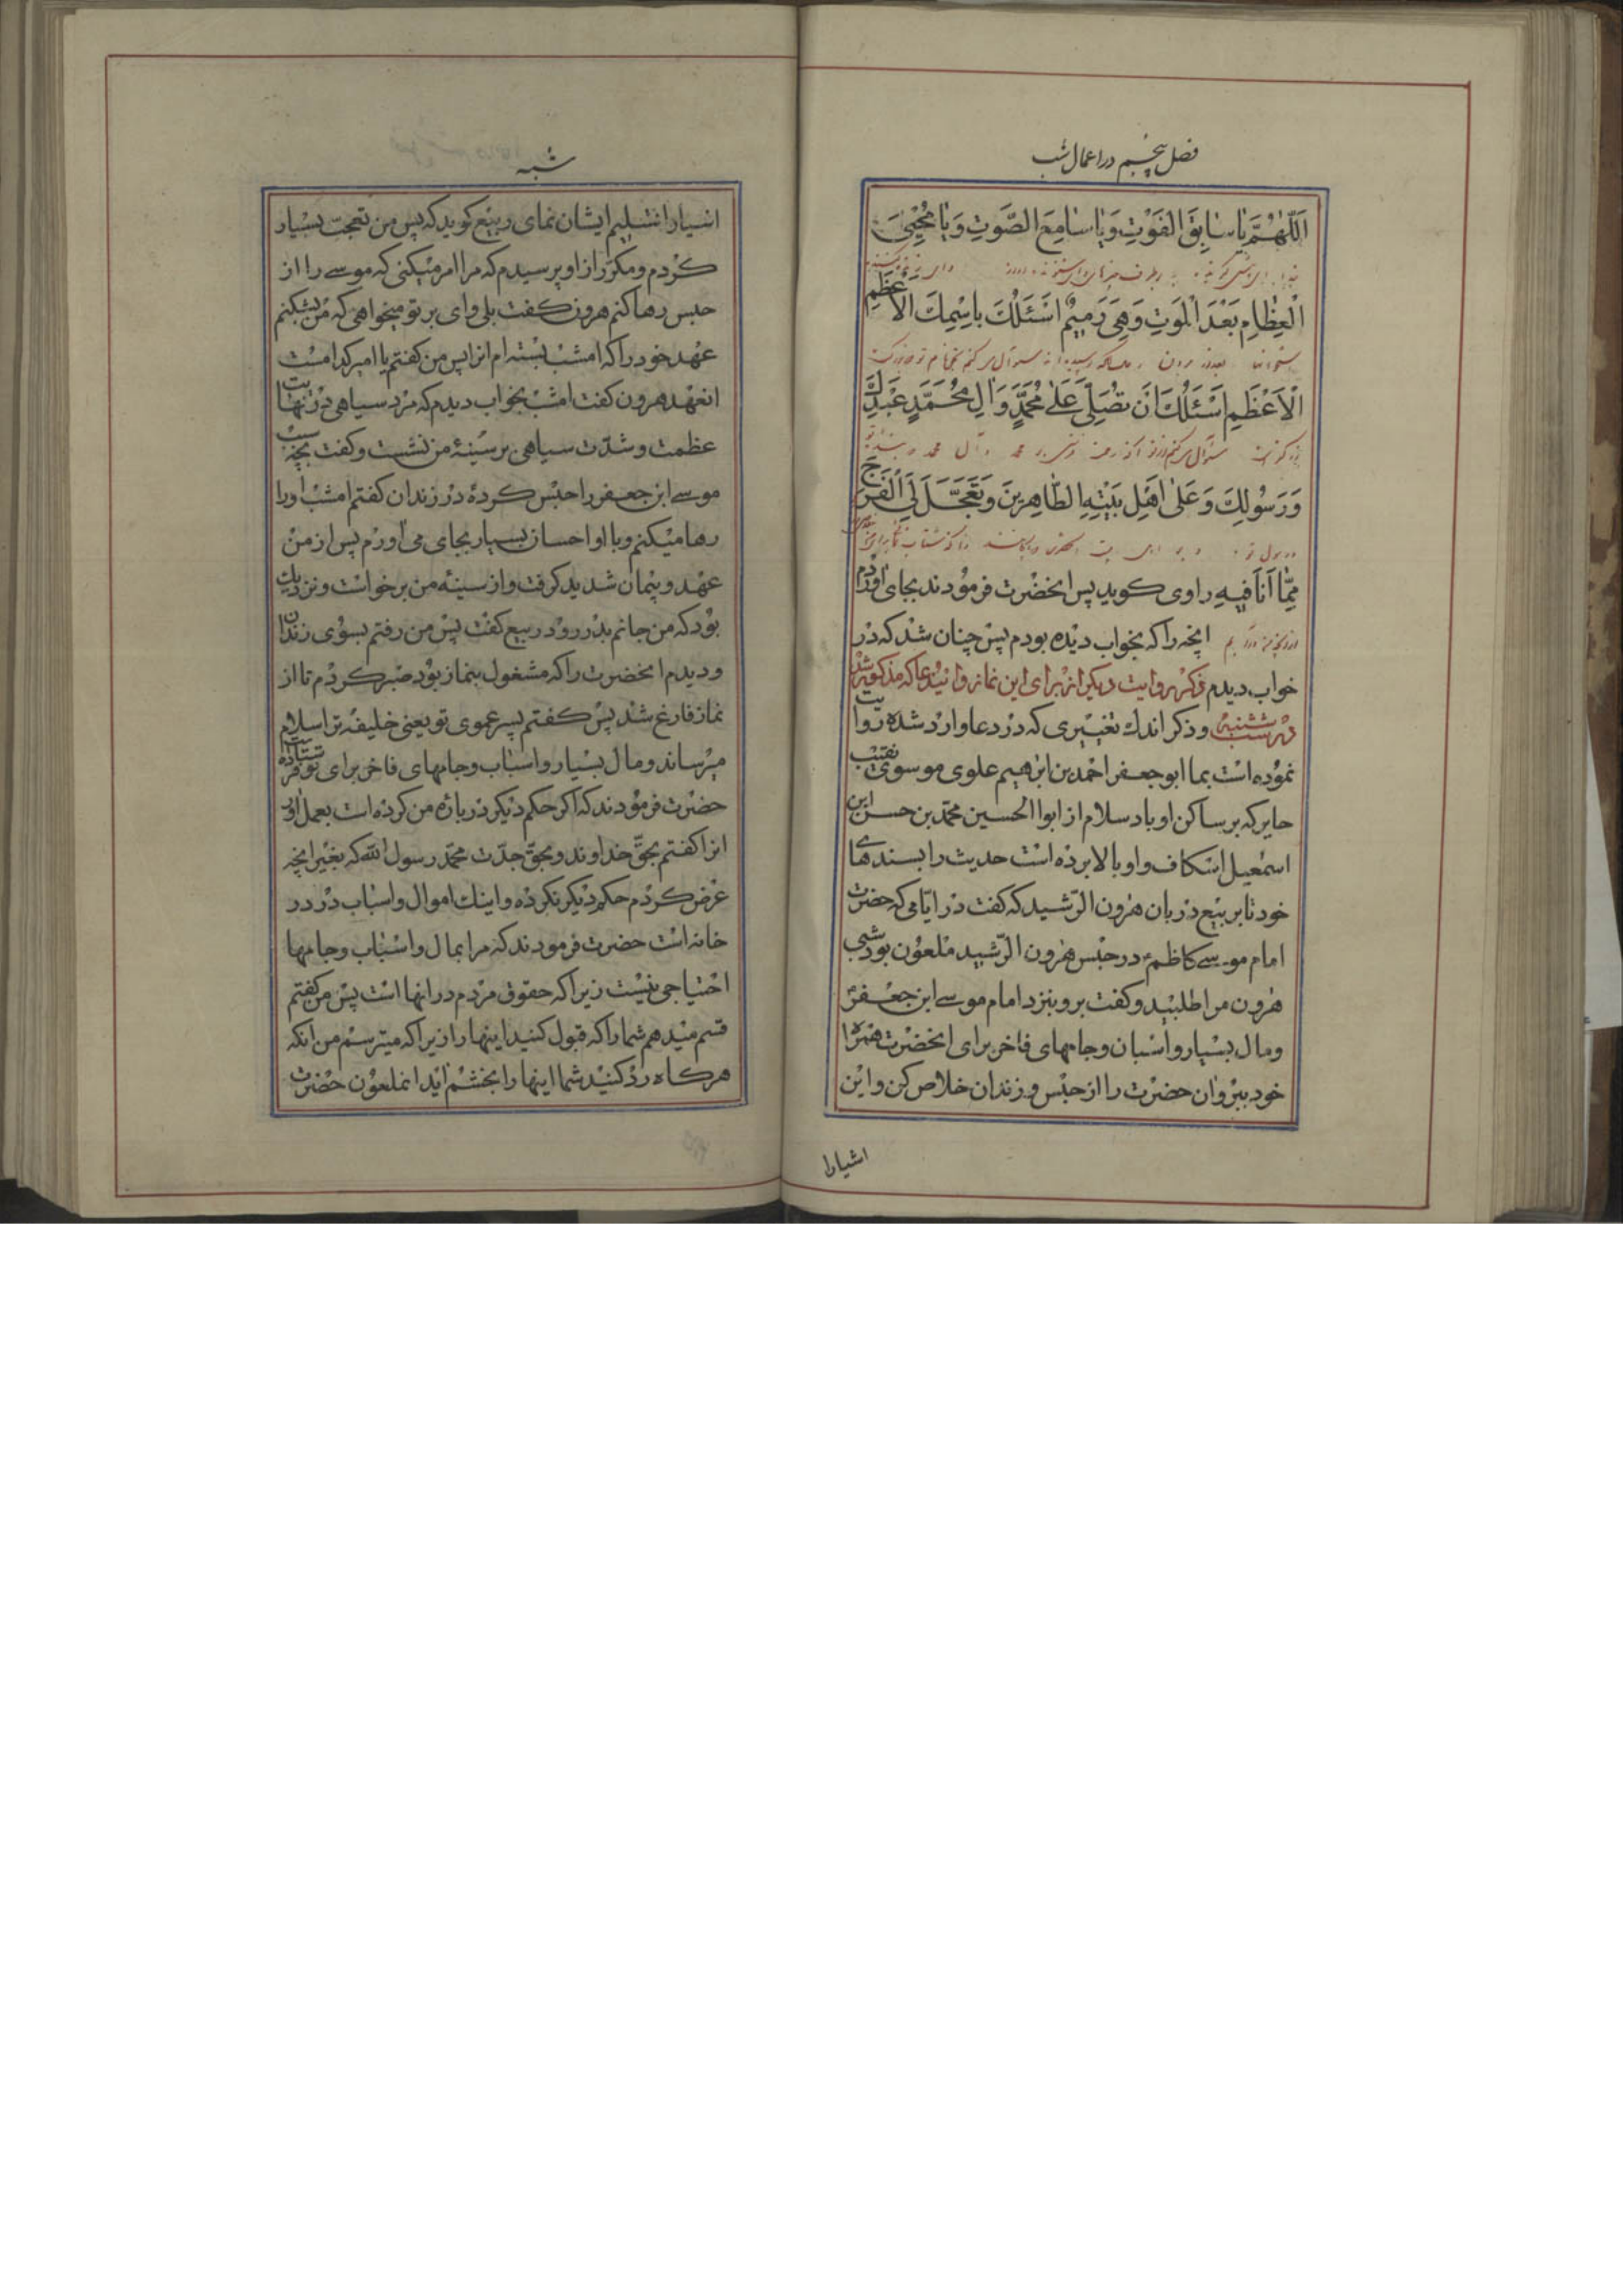 فصل پنجم در اعمال شب
اَللّٰهُمَّ يا سابِقَ الْفَوْتِ وَيا سامِعَ الصَّوْتِ وَيا مُحْيِيَ
الْعِظامِ بَعْدَ الْمَوْتِ وَهِيَ رَميمٌ اَسْئَلُكَ بِاسْمِكَ الْاَعْظَمِ
الْاَعْظَمِ اَسْئَلُكَ اَنْ تُصَلِّيَ عَلٰى مُحَمَّدٍ وَالِ مُحَمَّدٍ عَبْدِكَ
سؤال میکنم محمد و آل محمد
وَرَسُولِكَ وَعَلٰى اَهْلِ بَيْتِهِ الطّاهِرينَ وَتُعَجِّلَ لِيَ الْفَرَجَ
مِمّا اَنَا فيهِ راوی کوید پس انحضرت فرمودند بجای اوردم
انچه را که بخواب دیده بودم پس چنان شد که در
خواب دیدم ذکر روایت دیگر از برای این نماز و انید عا که مذکور شد
در شب شنبه و ذکر اندك تغییری که در دعا وارد شده روایت
نموده است بما ابو جعفر احمد بن ابرهیم علوی موسوی نقیب
حایر که بر ساکن او باد سلام از ابوا الحسین محمد بن حسن ابن
اسمعیل اسکاف و او بالا برده است حدیث را بسندهای
خود تا بربیع دربان هرون الرشید که کفت در ایامی که حضرت
امام موسی کاظم در حبس هرون الرشید ملعون بود شبی
هرون مرا طلبید و کفت برو بنزد امام موسی ابن جعفر
و مال بسیار و اسبان و جامهای فاخر برای انحضرت همراه
خود ببر و ان حضرت را از حبس و زندان خلاص کن و این
اشیا را
شنبه
اشیا را تسلیم ایشان نمای ربیع کوید که پس من تعجب بسیار
کردم و مکرر از او پرسیدم که مرا امر میکنی که موسی را از
حبس رها کنم هرون کفت بلی وای بر تو میخواهی که من بشکنم
عهد خود را که امشب بسته ام از این پس من کفتم یا امیر کدامست
انعهد هرون کفت امشب بخواب دیدم که مرد سیاهی در نهایت
عظمت و شدت سیاهی بر سینه من نشست و کفت بچه سبب
موسی ابن جعفر را حبس کرده در زندان کفتم امشب او را
رها میکنم و با او احسان بسیار بجای می اورم پس از من
عهد و پیمان شدید کرفت و از سینه من برخواست و نزدیك
بود که من جانم بدر رود ربیع کفت پس من رفتم بسوی زندان
و دیدم انحضرت را که مشغول بنماز بود صبر کردم تا از
نماز فارغ شد پس کفتم پسر عموی تو یعنی خلیفه ترا سلام
میرساند و مال بسیار و اسباب و جامهای فاخر برای تو فرستاده
حضرت فرمودند که اکر حکم دیکر در باره من کرده است بعمل اور
انرا کفتم بحق خداوند و بحق جدت محمد رسول الله که بغیر انچه
عرض کردم حکم دیکر نکرده و اینك اموال و اسباب در در
خانه است حضرت فرمودند که مرا بمال و اسباب و جامها
احتیاجی نیست زیرا که حقوق مردم در انها است پس من کفتم
قسم میدهم شما را که قبول کنید اینها را زیرا که میترسم من انکه
هرکاه رد کنید شما اینها را بخشم اید انملعون حضرت